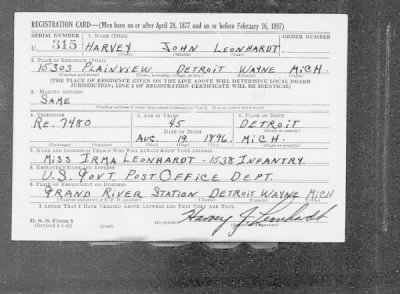 REGISTRATION CARD—(Men born on or after April 28, 1877 and on or before February 16, 1897)
SERIAL NUMBER 1. NAME (Print) ORDER NUMBER
U 315 HARVEY JOHN LEONHARDT
2. PLACE OF RESIDENCE (Print)
15303 PLAINVIEW DETROIT WAYNE MICH.
[THE PLACE OF RESIDENCE GIVEN ON THE LINE ABOVE WILL DETERMINE LOCAL BOARD
JURISDICTION; LINE 2 OF REGISTRATION CERTIFICATE WILL BE IDENTICAL]
3. MAILING ADDRESS
SAME
4. TELEPHONE 5. AGE IN YEARS 6. PLACE OF BIRTH
RE. 7480 45 DETROIT
DATE OF BIRTH
AUG. 19 1896. MICH.
7. NAME AND ADDRESS OF PERSON WHO WILL ALWAYS KNOW YOUR ADDRESS
MISS IRMA LEONHARDT - 1538 INFANTRY.
8. EMPLOYER'S NAME AND ADDRESS
U.S. GOVT. POST OFFICE DEPT.
9. PLACE OF EMPLOYMENT OR BUSINESS
GRAND RIVER STATION DETROIT WAYNE MICH
I AFFIRM THAT I HAVE VERIFIED ABOVE ANSWERS AND THAT THEY ARE TRUE.
D. S. S. Form 1
Harvey J. Leonhardt